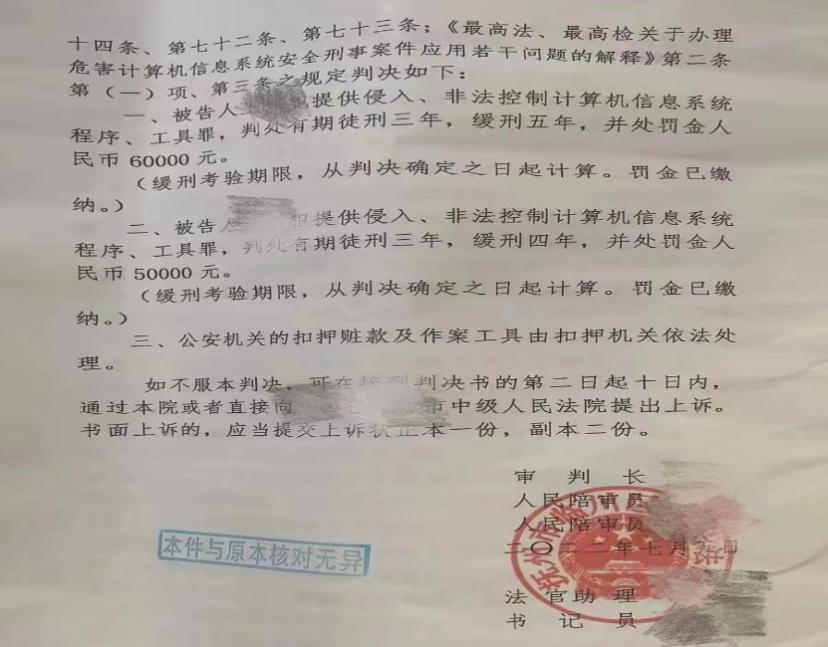 十四条、第七十二条、第七十三条；《最高法、最高检关于办理
危害计算机信息系统安全刑事案件应用若干问题的解释》第二条
第（一）项、第三条之规定判决如下：
一、被告人 犯提供侵入、非法控制计算机信息系统
程序、工具罪，判处有期徒刑三年，缓刑五年，并处罚金人
民币 60000 元。
（缓刑考验期限，从判决确定之日起计算。罚金已缴
纳。）
二、被告人 犯提供侵入、非法控制计算机信息系统
程序、工具罪，判处有期徒刑三年，缓刑四年，并处罚金人
民币 50000 元。
（缓刑考验期限，从判决确定之日起计算。罚金已缴
纳。）
三、公安机关的扣押赃款及作案工具由扣押机关依法处
理。
如不服本判决，可在接到判决书的第二日起十日内，
通过本院或者直接向 市中级人民法院提出上诉。
书面上诉的，应当提交上诉状正本一份，副本二份。
审 判 长
人民陪审员
人民陪审员
二〇二二年七月 日
本件与原本核对无异
法 官 助 理
书 记 员